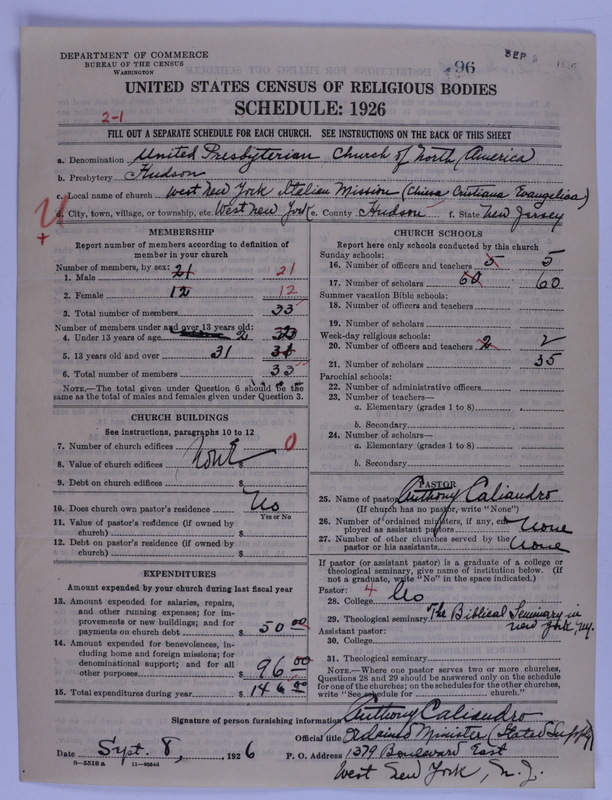 DEPARTMENT OF COMMERCE
BUREAU OF THE CENSUS
WASHINGTON
SEP
96
UNITED STATES CENSUS OF RELIGIOUS BODIES
SCHEDULE: 1926
2-1
FILL OUT A SEPARATE SCHEDULE FOR EACH CHURCH. SEE INSTRUCTIONS ON THE BACK OF THIS SHEET
a. Denomination United Presbyterian Church of North America
b. Presbytery Hudson
c. Local name of church West New York Italian Mission (Chiesa Cristiana Evangelica)
d. City, town, village, or township, etc. West New York e. County Hudson f. State New Jersey
MEMBERSHIP
Report number of members according to definition of
member in your church
Number of members, by sex:
1. Male 21 21
2. Female 12 12
3. Total number of members 33
Number of members under and over 13 years old:
4. Under 13 years of age 2
5. 13 years old and over 31
6. Total number of members 33
NOTE.—The total given under Question 6 should be the
same as the total of males and females given under Question 3.
CHURCH BUILDINGS
See instructions, paragraphs 10 to 12
7. Number of church edifices None 0
8. Value of church edifices $
9. Debt on church edifices $
10. Does church own pastor's residence No
Yes or No
11. Value of pastor's residence (if owned by
church) $
12. Debt on pastor's residence (if owned by
church) $
EXPENDITURES
Amount expended by your church during last fiscal year
13. Amount expended for salaries, repairs,
and other running expenses; for im-
provements or new buildings; and for
payments on church debt $ 50 00
14. Amount expended for benevolences, in-
cluding home and foreign missions; for
denominational support; and for all
other purposes $ 96 00
15. Total expenditures during year $ 146 00
CHURCH SCHOOLS
Report here only schools conducted by this church
Sunday schools:
16. Number of officers and teachers 5 5
17. Number of scholars 60 60
Summer vacation Bible schools:
18. Number of officers and teachers
19. Number of scholars
Week-day religious schools:
20. Number of officers and teachers 2 2
21. Number of scholars 35
Parochial schools:
22. Number of administrative officers
23. Number of teachers—
a. Elementary (grades 1 to 8)
b. Secondary
24. Number of scholars—
a. Elementary (grades 1 to 8)
b. Secondary
PASTOR
25. Name of pastor Anthony Caliandro
(If church has no pastor, write "None")
26. Number of ordained ministers, if any, em-
ployed as assistant pastors None
27. Number of other churches served by the
pastor or his assistants None
If pastor (or assistant pastor) is a graduate of a college or
theological seminary, give name of institution below. (If
not a graduate, write "No" in the space indicated.)
Pastor: 4
28. College No
29. Theological seminary The Biblical Seminary in
New York, N.Y.
Assistant pastor:
30. College
31. Theological seminary
NOTE.—Where one pastor serves two or more churches,
Questions 28 and 29 should be answered only on the schedule
for one of the churches; on the schedules for the other churches,
write "See schedule for church."
Signature of person furnishing information Anthony Caliandro
Official title Ordained Minister (Stated Supply)
Date Sept. 8, 1926 P. O. Address 1379 Boulevard East
8-5518 a
West New York, N. J.